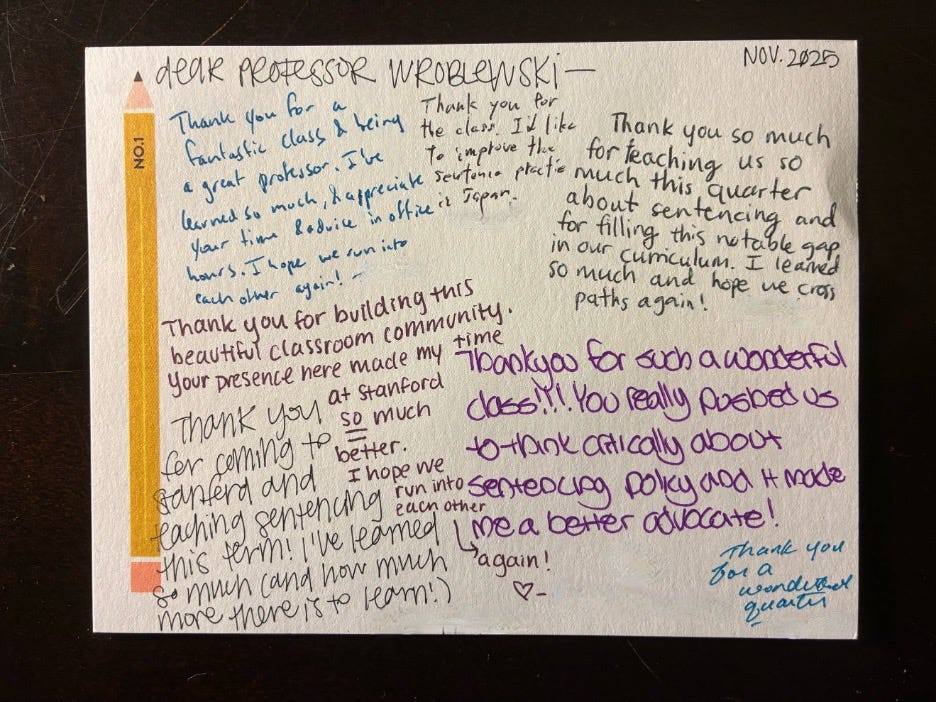 dear PROFESSOR WROBLEWSKI—
NOV. 2025
NO.1
Thank you for a
fantastic class & being
a great professor. I've
learned so much, & appreciate
your time & advice in office
hours. I hope we run into
each other again! —
Thank you for
the class. I'd like
to improve the
sentence practice
in Japan.
Thank you so much
for teaching us so
much this quarter
about sentencing and
for filling this notable gap
in our curriculum. I learned
so much and hope we cross
paths again!
Thank you for building this
beautiful classroom community.
Your presence here made my time
at Stanford
so much
better.
I hope we
run into
each other
again!
♡-
Thank you
for coming to
Stanford and
teaching sentencing
this term! I've learned
so much (and how much
more there is to learn!)
Thank you for such a wonderful
class!!! You really pushed us
to think critically about
sentencing policy and it made
me a better advocate!
Thank you
for a
wonderful
quarter